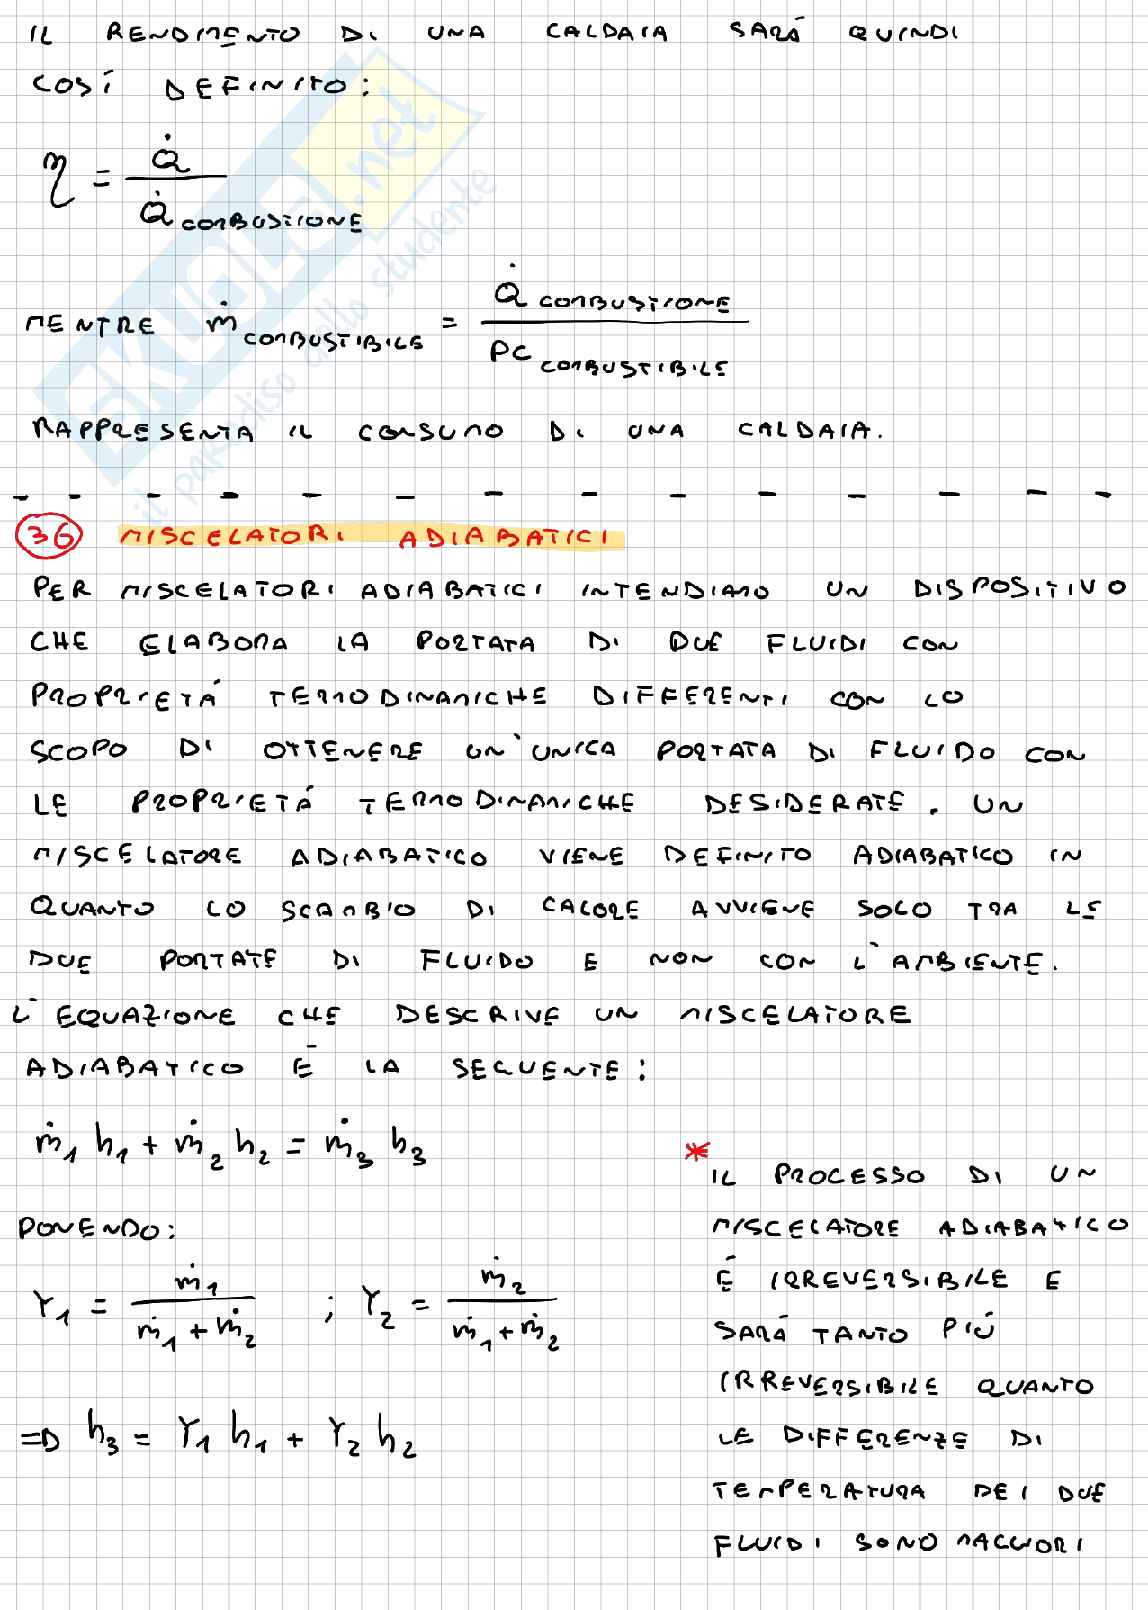 IL RENDIMENTO DI UNA CALDAIA SARÁ QUINDI
COSÍ DEFINITO:
η = Q̇ / Q̇ COMBUSTIONE
MENTRE ṁ COMBUSTIBILE = Q̇ COMBUSTIONE / PC COMBUSTIBILE
RAPPRESENTA IL CONSUMO DI UNA CALDAIA.
36 MISCELATORI ADIABATICI
PER MISCELATORI ADIABATICI INTENDIAMO UN DISPOSITIVO
CHE ELABORA LA PORTATA DI DUE FLUIDI CON
PROPRIETÁ TERMODINAMICHE DIFFERENTI CON LO
SCOPO DI OTTENERE UN'UNICA PORTATA DI FLUIDO CON
LE PROPRIETÁ TERMODINAMICHE DESIDERATE. UN
MISCELATORE ADIABATICO VIENE DEFINITO ADIABATICO IN
QUANTO LO SCAMBIO DI CALORE AVVIENE SOLO TRA LE
DUE PORTATE DI FLUIDO E NON CON L'AMBIENTE.
L'EQUAZIONE CHE DESCRIVE UN MISCELATORE
ADIABATICO É LA SEGUENTE:
ṁ1 h1 + ṁ2 h2 = ṁ3 h3
PONENDO:
r1 = ṁ1 / (ṁ1 + ṁ2) ; r2 = ṁ2 / (ṁ1 + ṁ2)
=D h3 = r1 h1 + r2 h2
* IL PROCESSO DI UN
MISCELATORE ADIABATICO
É IRREVERSIBILE E
SARÁ TANTO PIÚ
IRREVERSIBILE QUANTO
LE DIFFERENZE DI
TEMPERATURA DEI DUE
FLUIDI SONO MAGGIORI
SKUOLA.net
il paradiso dello studente